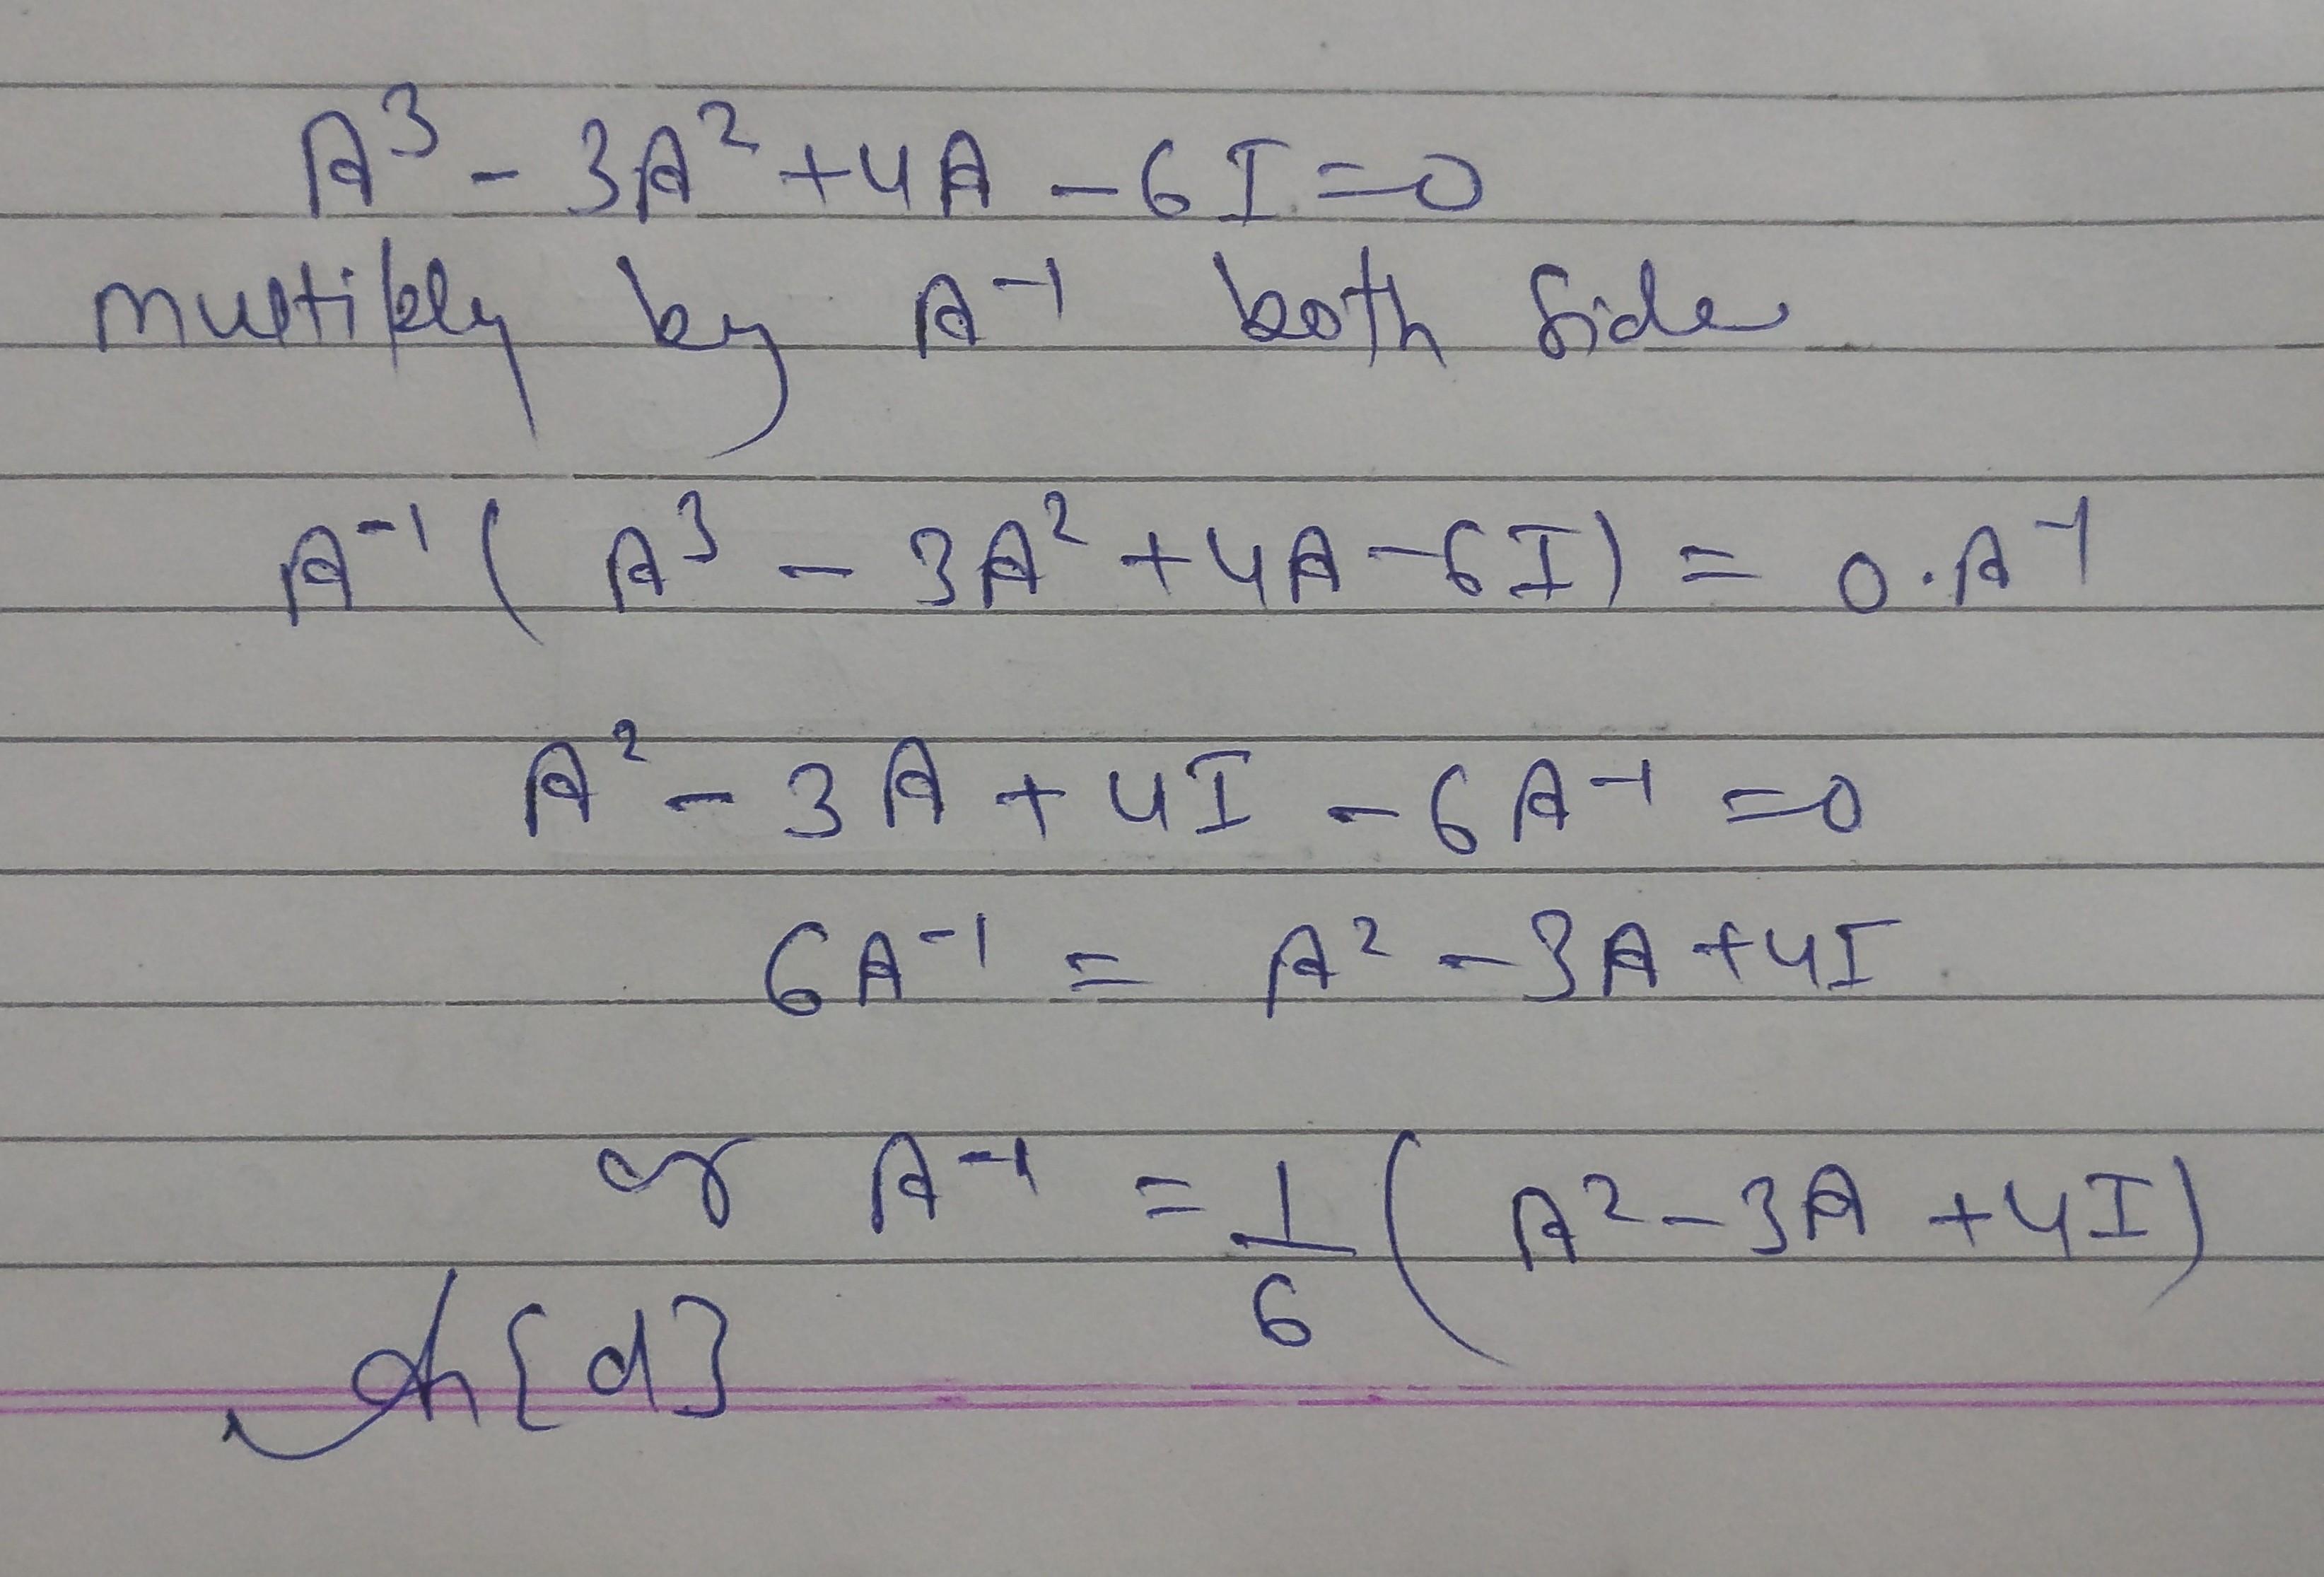 A³ - 3A² + 4A - 6I = 0
multiply by A⁻¹ both side
A⁻¹ ( A³ - 3A² + 4A - 6I ) = 0 . A⁻¹
A² - 3A + 4I - 6A⁻¹ = 0
6A⁻¹ = A² - 3A + 4I
or A⁻¹ = 1/6 ( A² - 3A + 4I )
{d}